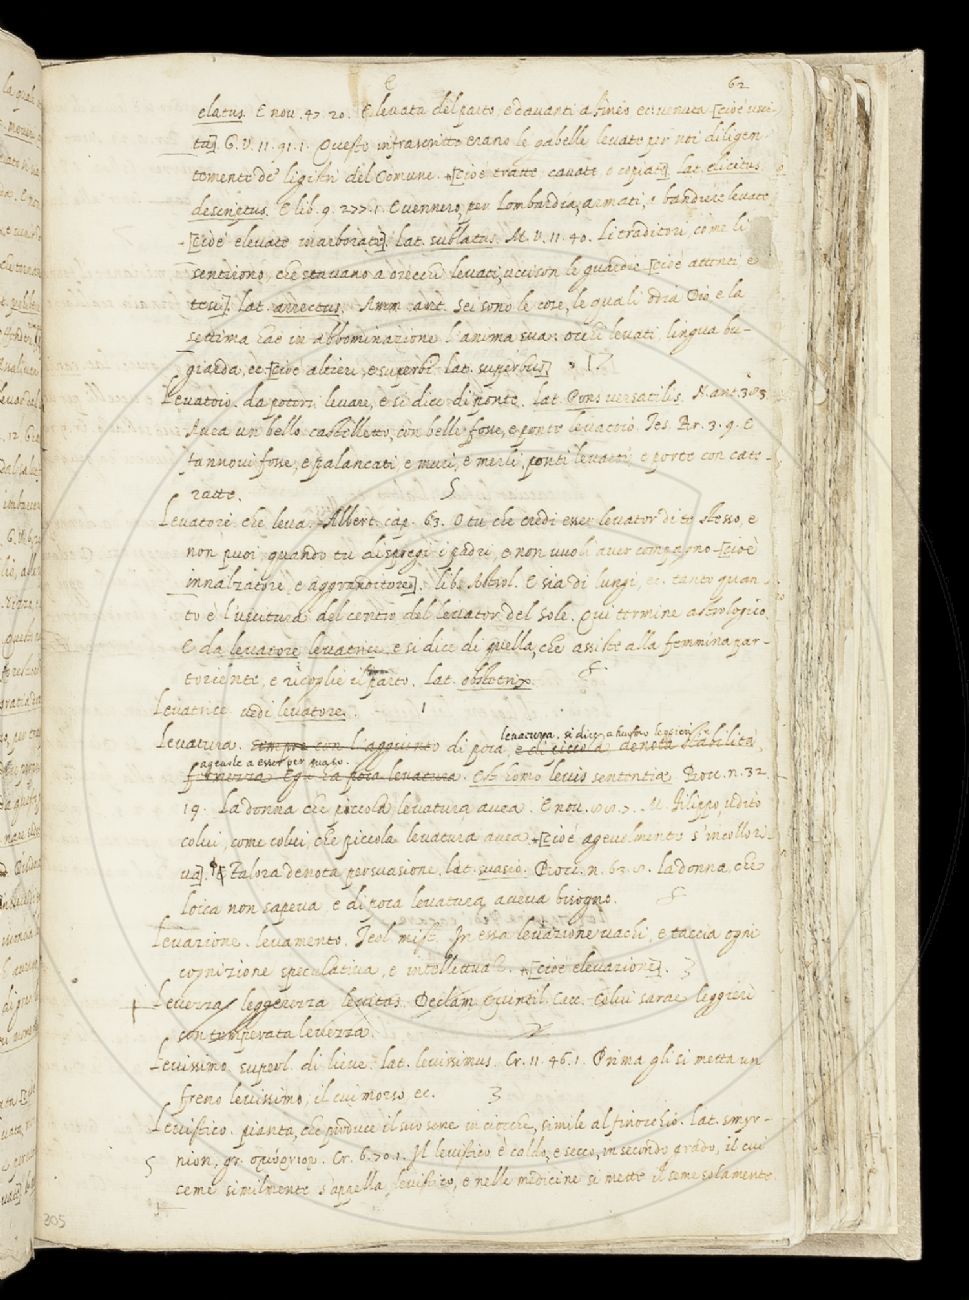 E 62
elatus. E nov. 47. 20. E levata del parto, e davanti a Fineo ec. venuta [cioè usci-
ta]. G. V. 11. 91. 1. Queste infrascritte erano le gabelle levate per noi diligen-
temente de' registri del Comune. [cioè tratte cavate o copiate] lat. elicitus
descriptus. E lib. 9. 277. 1. E vennero per Lombardia, armati, a bandiere levate
[cioè elevate inarborate] lat. sublatus. M. V. 11. 40. Li traditori, come li
sentirono, che stavano a orecchi levati, uccison le guardie [cioè attenti e
tesi] lat. arrectus. Amm. ant. Sei sono le cose, le quali odia Dio, e la
settima hae in abbominazione l'anima sua: occhi levati, lingua bu-
giarda, ec. [cioè altieri, e superbi lat. superbus]
Levatoio. da potersi levare, e si dice di ponte. lat. Pons versatilis. N. ant. 38.3
Avea un bello castelletto, con belle fosse, e ponte levatoio. Tes. Br. 3. 9. E
fannovi fosse, e palancati, e muri, e merli, ponti levatoi, e porte con cate-
ratte. 5
Levatore. che leva. Albert. cap. 63. O tu che credi esser levator di te stesso, e
non puoi, quando tu dispregi i padri, e non vuoli aver compagno [cioè
innalzatore, e aggranditore]. lib. Astrol. E sia di lungi, ec. tanto quan-
to è l'uscitura del centro del levator del Sole. Qui termine astrologico.
E da levatore levatrice, e si dice di quella, che assiste alla femmina par-
toriente, e ricoglie il parto. Lat. obstetrix.
Levatrice vedi levatore. 1
levatura, si dice a huomo leggieri
Levatura. sempre con l'aggiunto di poca, e di piccola denota stabilità,
agevole a esser persuaso.
fermezza Egli ha poca levatura. Est homo levis sententia Bocc. n. 32.
19. La donna che piccola levatura avea. E nov. M. Filippo, udito
colui, come colui, che piccola levatura avea [cioè agevolmente s'incollori-
va]. Talora denota persuasione, lat. suasio. Bocc. n. 62. La donna, che
loica non sapeva e di poca levatura aveva bisogno.
Levazione. levamento. Teol. mist. In essa levazione vachi, e taccia ogni
cognizione speculativa, e intellettual. [cioè elevazione]. 3
Levezza leggerezza levitas. Declam. Quintil. Cec. Colui sarae leggieri
con temperata levezza.
Levissimo. superl. di lieve. lat. levissimus. Cr. 11. 46. 1. Prima gli si metta un
freno levissimo, il cui morso, ec. 3
Levistico. pianta, che produce il suo seme in ciocche, simile al finocchio. lat. smyr-
5 nion, gr. σμύρνιον. Cr. 6. 70. 1. Il levistico è caldo, e secco, in secondo grado, il cui
seme similmente s'appella levistico, e nelle medicine si mette il seme solamente
305